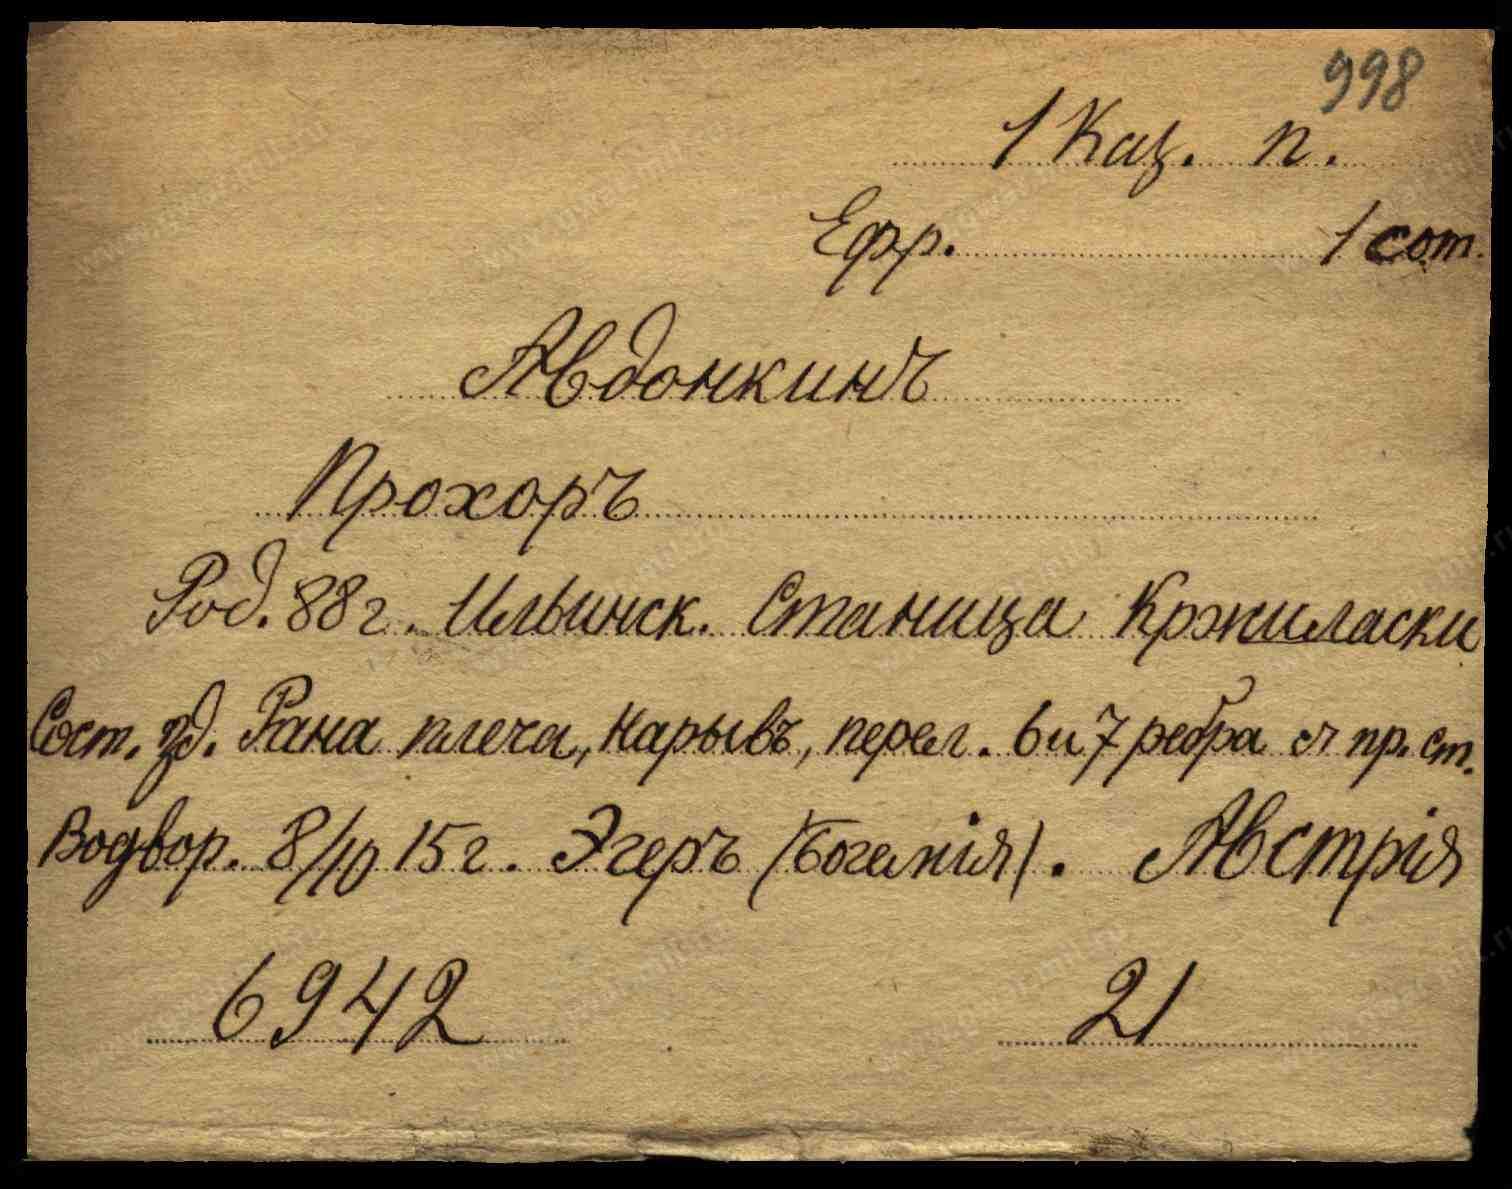 998
1 Каз. п.
Ефр. 1 сот.
Авдонкинъ
Прохоръ
Род. 88 г. Ильинск. Станица Кржиласки
Сост. зд. Рана плеча, нарывъ, перел. 6 и 7 ребра съ пр. ст.
Водвор. 8/10 15 г. Эгеръ (Богемія). Австрія
6942 21